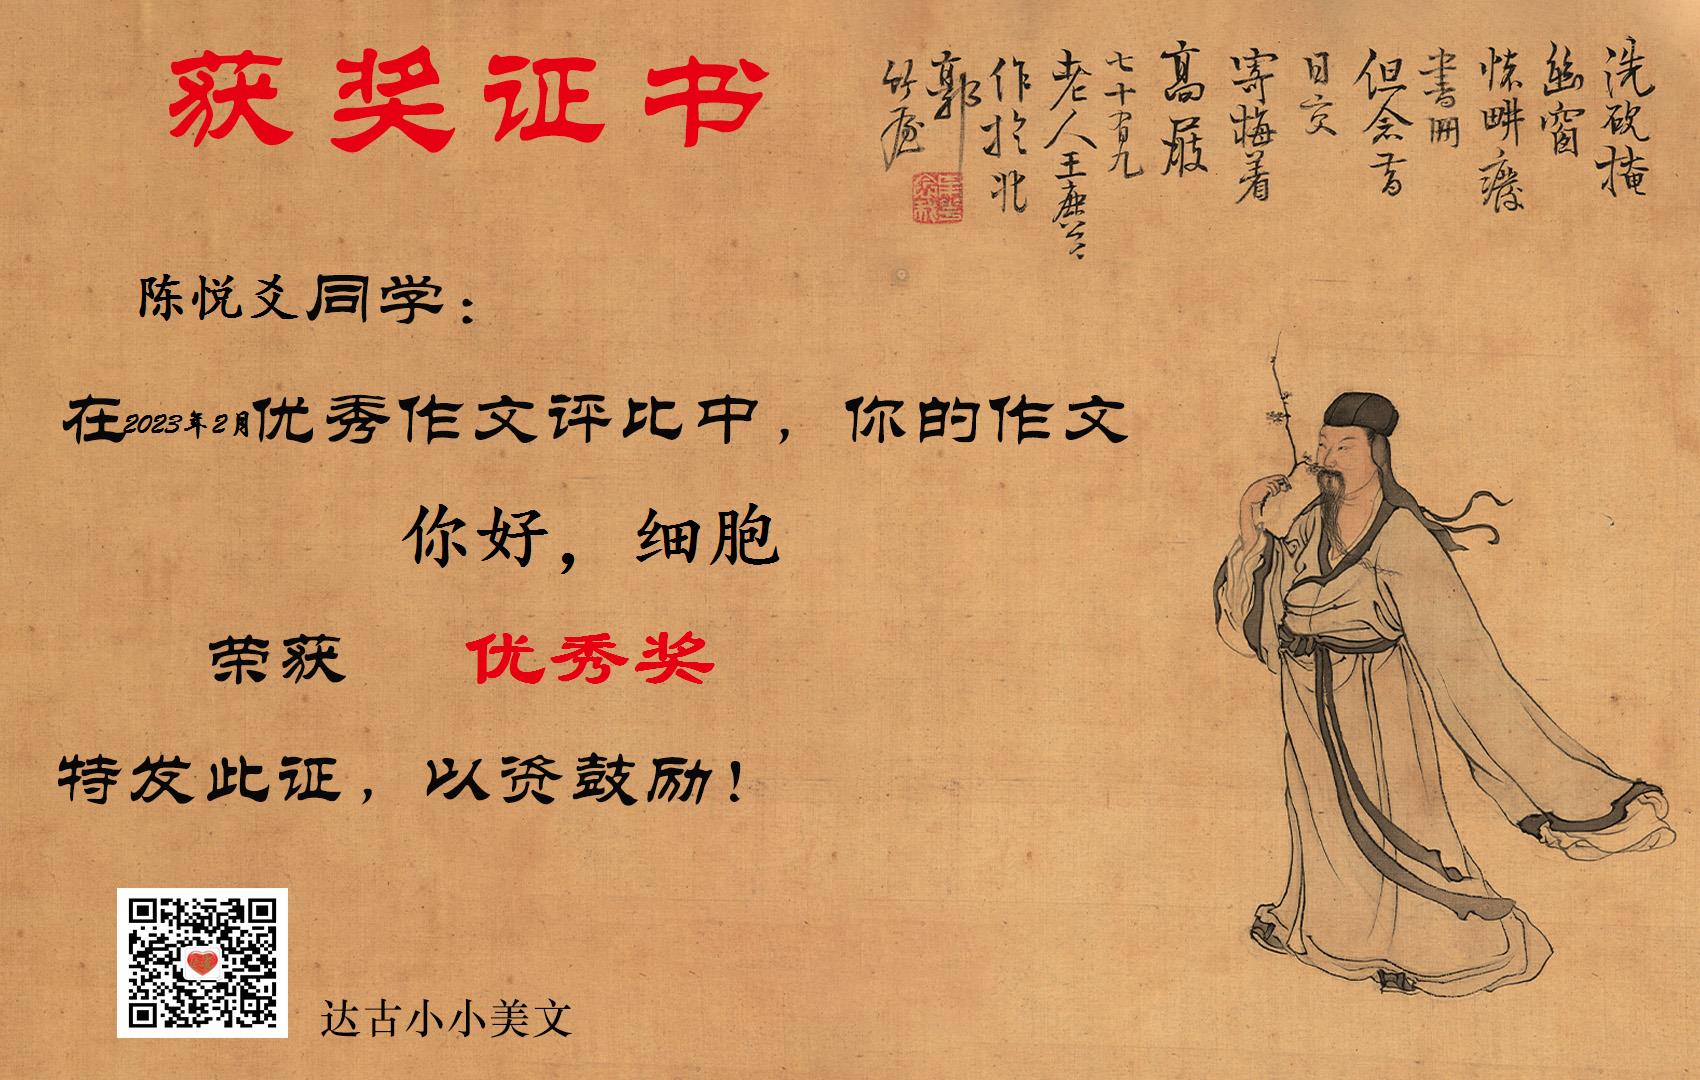 获奖证书
洗砚掩
幽窗
怀畊癈
書冊
但念昔
日交
寄梅着
高屐
七十有九
老人王鹿公
作於北
郭
竹屋
陈悦爻同学：
在2023年2月优秀作文评比中，你的作文
你好，细胞
荣获 优秀奖
特发此证，以资鼓励！
达古小小美文